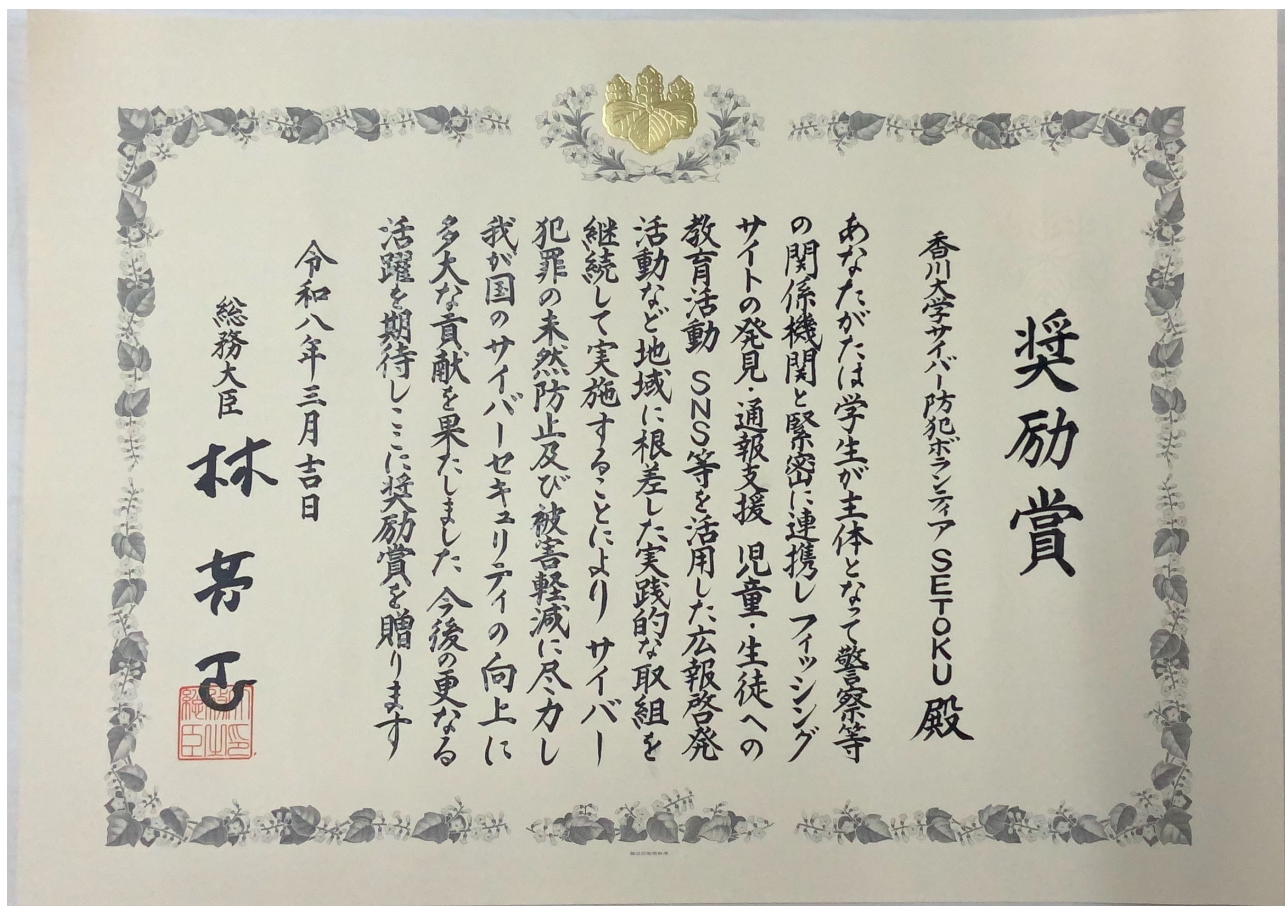 奨励賞
香川大学サイバー防犯ボランティアSETOKU 殿
あなたがたは学生が主体となって警察等
の関係機関と緊密に連携し フィッシング
サイトの発見・通報支援 児童・生徒への
教育活動 SNS等を活用した広報啓発
活動など地域に根差した実践的な取組を
継続して実施することにより サイバー
犯罪の未然防止及び被害軽減に尽力し
我が国のサイバーセキュリティの向上に
多大な貢献を果たしました 今後の更なる
活躍を期待しここに奨励賞を贈ります
令和八年三月吉日
総務大臣 林 芳正